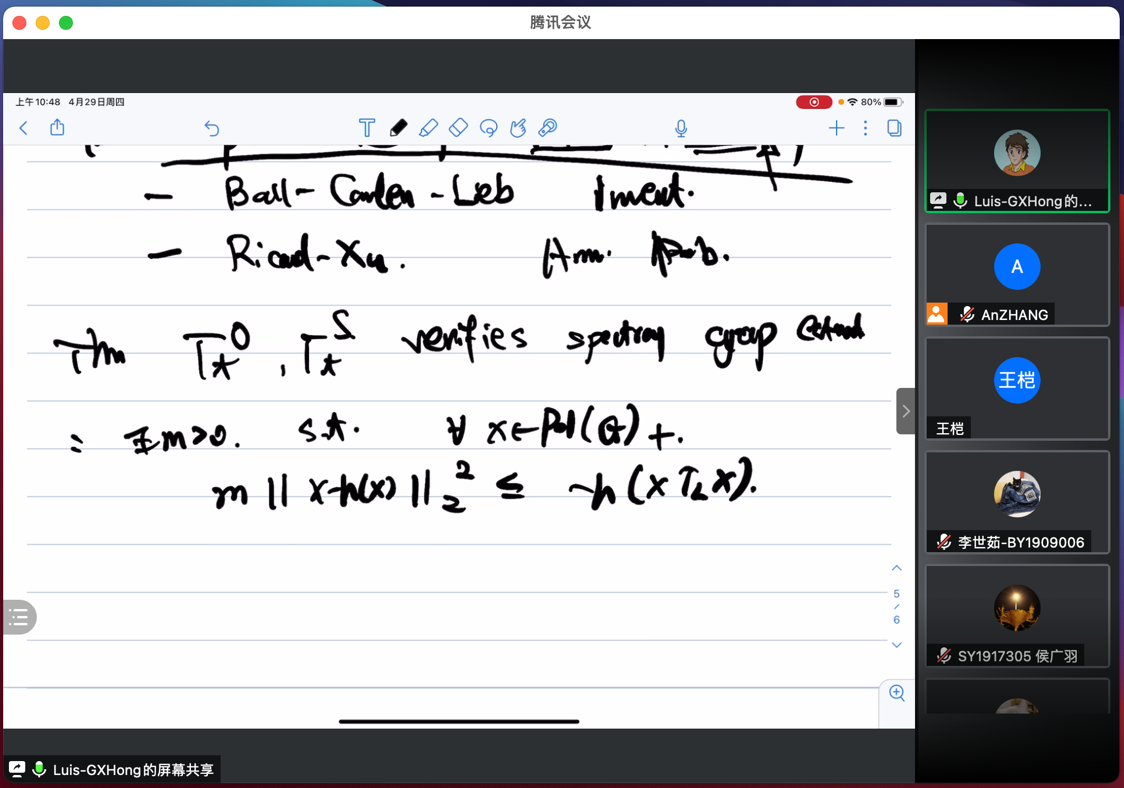 腾讯会议
上午10:48 4月29日周四
80%
— Ball-Carlen-Lieb Invent.
— Ricard-Xu. Ann. Prob.
Thm T_t^O, T_t^S verifies spectral gap
: ∃ m>0. s.t. ∀ x∈Pol(G)+.
m ‖x-h(x)‖_2^2 ≤ -h(x T_L x).
5
6
Luis-GXHong的...
A
AnZHANG
王桤
王桤
李世茹-BY1909006
SY1917305 侯广羽
Luis-GXHong的屏幕共享